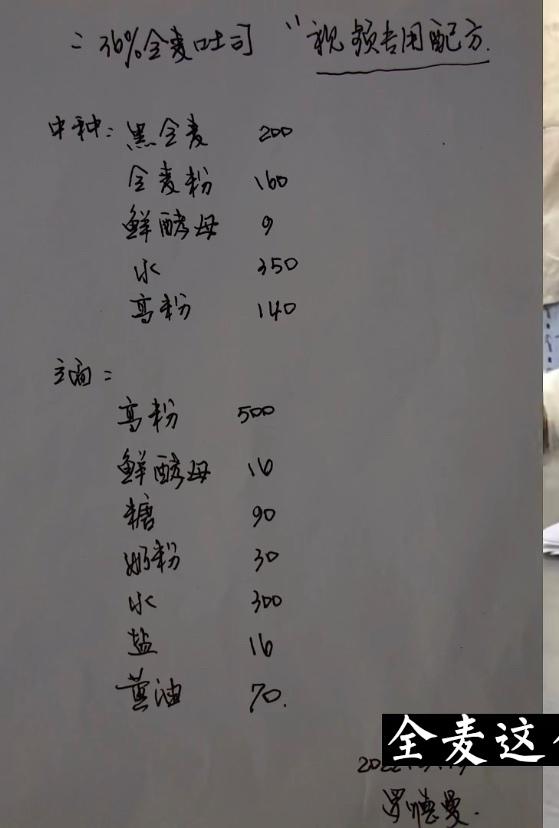 二 36%全麦吐司 "视频专用配方.
中种: 黑全麦 200
全麦粉 160
鲜酵母 9
水 350
高粉 140
主面:
高粉 500
鲜酵母 16
糖 90
奶粉 30
水 300
盐 16
黄油 70.
全麦这